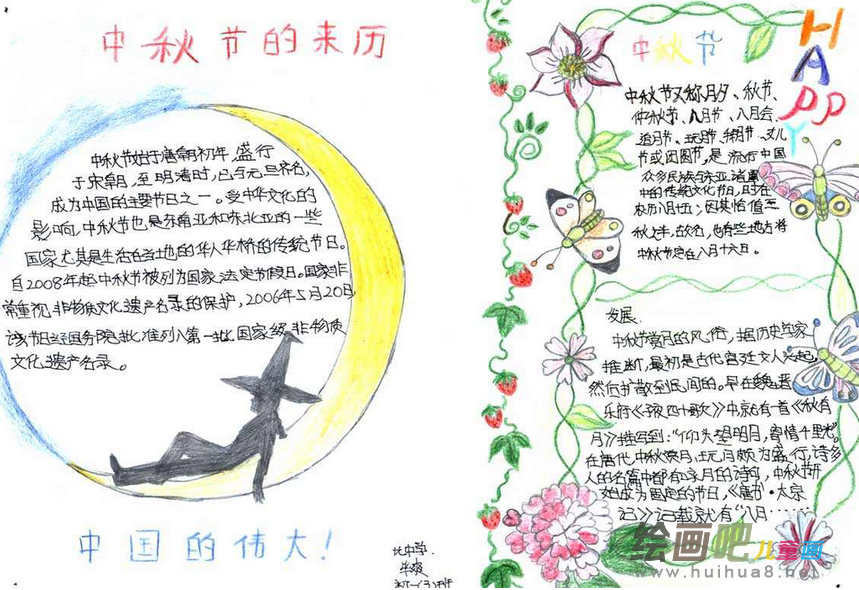 中秋节的来历
中秋节始于唐朝初年，盛行
于宋朝，至明清时，已与元旦齐名，
成为中国的主要节日之一。受中华文化的
影响，中秋节也是东南亚和东北亚的一些
国家尤其是生活在当地的华人华侨的传统节日。
自2008年起中秋节被列为国家法定节假日。国家非
常重视非物质文化遗产名录的保护，2006年5月20日，
该节日经国务院批准列入第一批国家级非物质
文化遗产名录。
中国的伟大！
北中学
初一（3）班
HAPPY
中秋节
中秋节又称月夕、秋节、
仲秋节、八月节、八月会、
追月节、玩月节、拜月节、女儿
节或团圆节，是流行中国
众多民族与东亚诸国
中的传统文化节日，时在
农历八月十五；因其恰值三
秋之半，故名，也有些地方将
中秋节定在八月十六日。
发展：
中秋节赏月的风俗，据历史学家
推断，最初是古代宫廷文人兴起，
然后扩散到民间的。早在魏晋
乐府《子夜四十歌》中就有一首《秋有
月》描写到：“仰头望明月，寄情千里光”。
在唐代，中秋赏月、玩月颇为盛行，许多
人的名篇中都有咏月的诗句，中秋节开
始成为固定的节日，《唐书·太宗
记》记载就有“八月……
绘画吧儿童画
www.huihua8.net